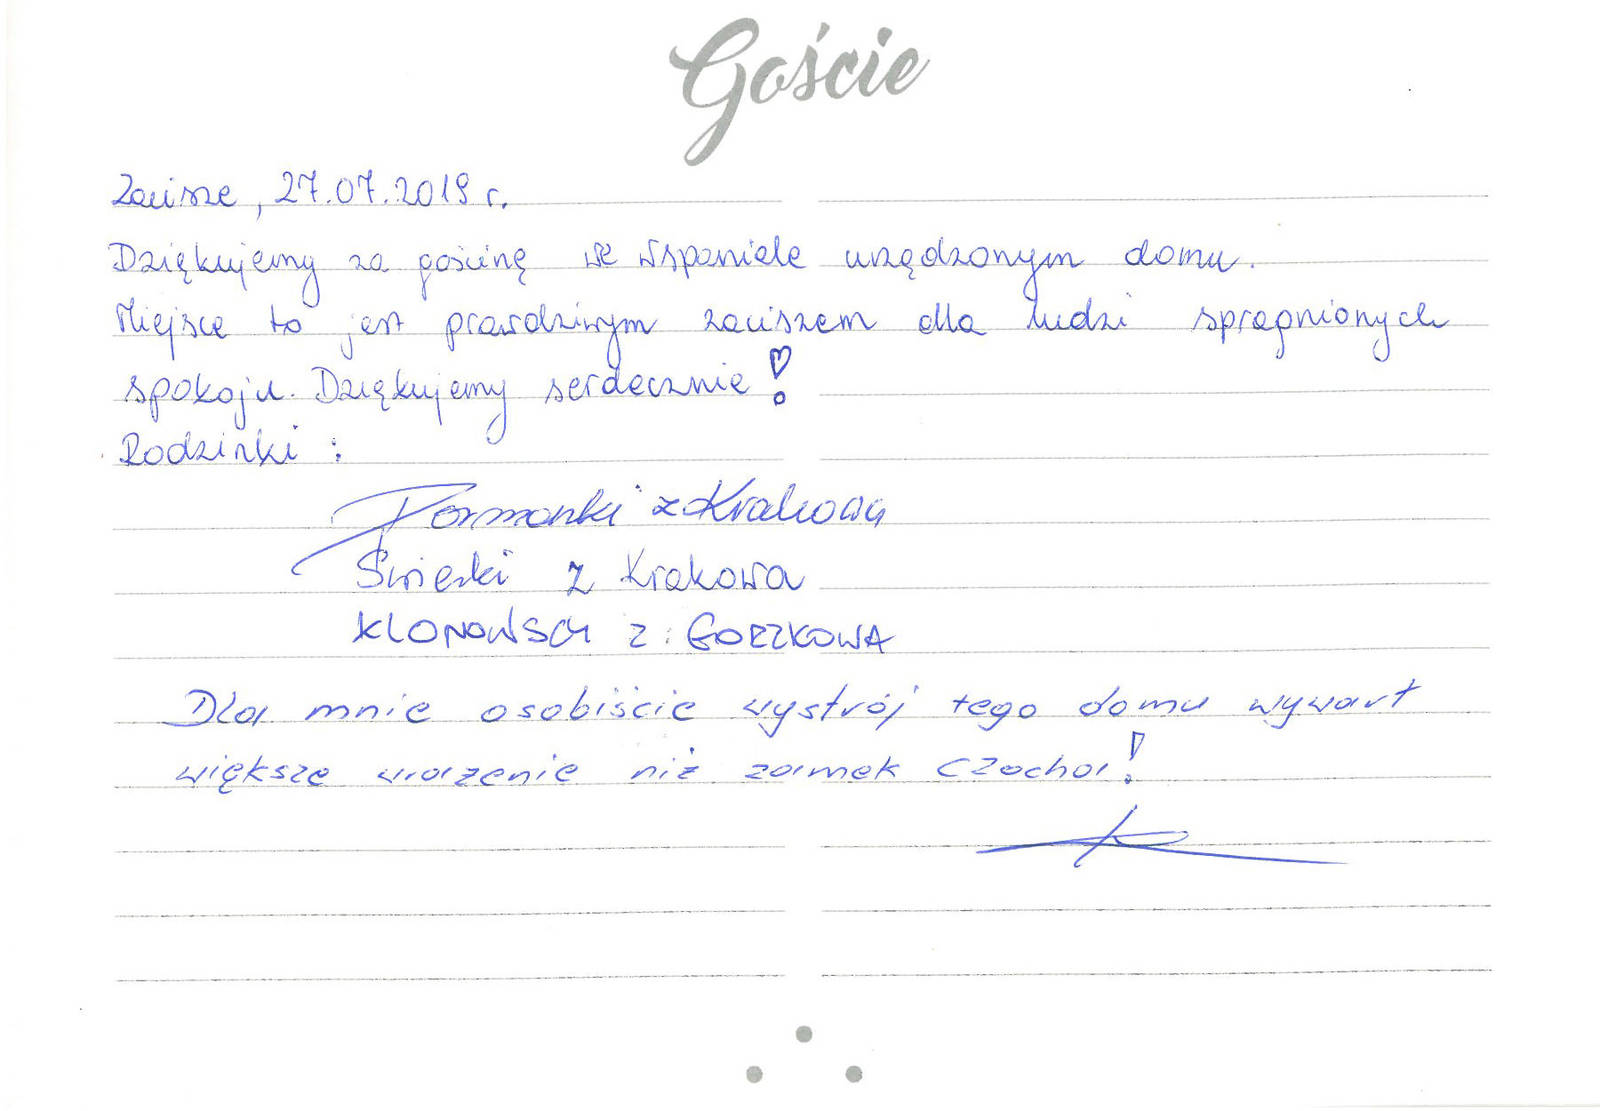 Goście
Zacisze, 27.07.2019 r.
Dziękujemy za gościnę we wspaniale urządzonym domu.
Miejsce to jest prawdziwym zaciszem dla ludzi spragnionych
spokoju. Dziękujemy serdecznie!
Rodzinki:
z Krakowa
z Krakowa
KLONOWSCY Z GORZKOWA
Dla mnie osobiście wystrój tego domu wywarł
większe wrażenie niż zamek Czocha!